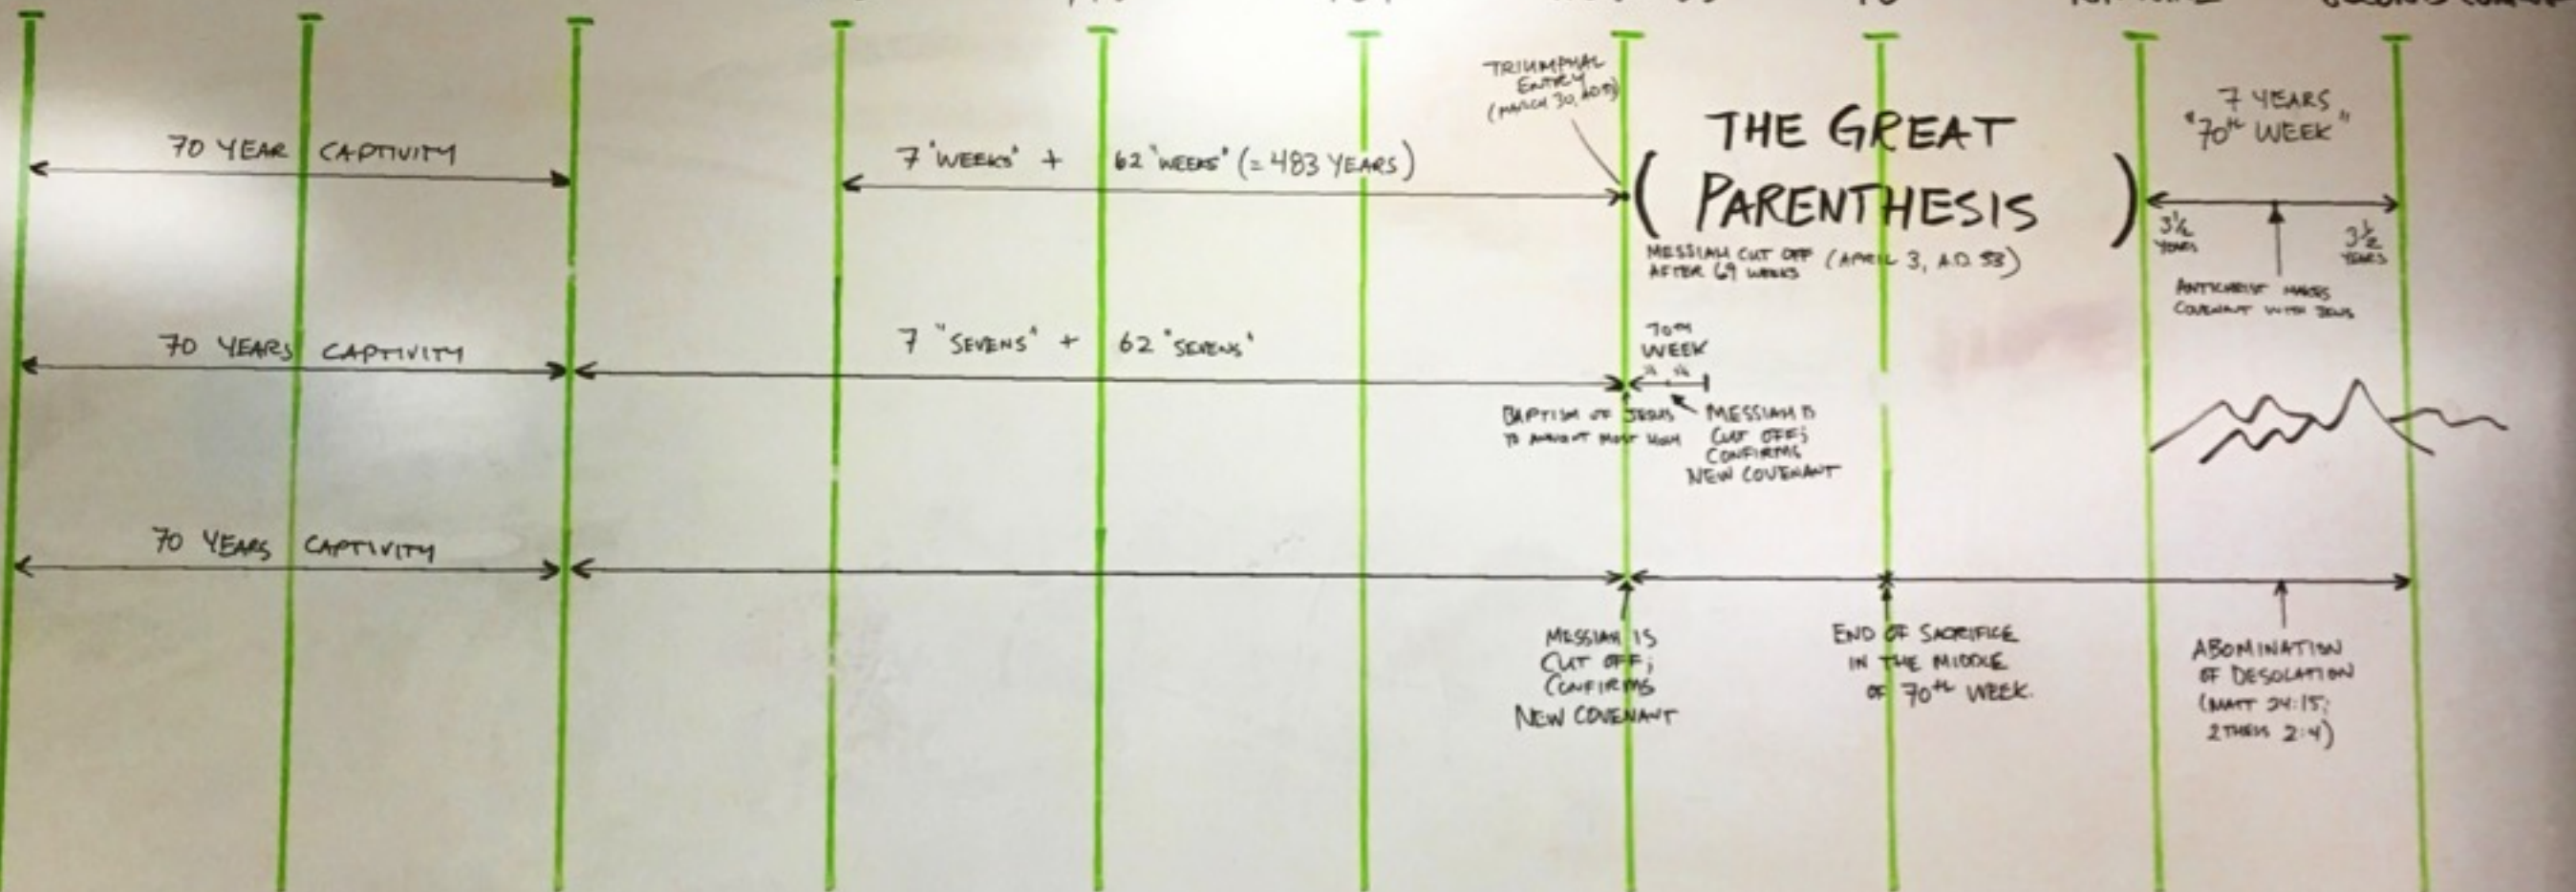 TRIUMPHAL
ENTRY
(MARCH 30, AD 33)
70 YEAR CAPTIVITY
7 "WEEKS" + 62 "WEEKS" (= 483 YEARS)
( THE GREAT
PARENTHESIS )
MESSIAH CUT OFF (APRIL 3, A.D. 33)
AFTER 69 WEEKS
7 YEARS
"70th WEEK"
3½
YEARS
3½
YEARS
ANTICHRIST MAKES
COVENANT WITH JEWS
70 YEARS CAPTIVITY
7 "SEVENS" + 62 "SEVENS"
70TH
WEEK
BAPTISM OF JESUS
TO ANOINT MOST HOLY
MESSIAH IS
CUT OFF;
CONFIRMS
NEW COVENANT
70 YEARS CAPTIVITY
MESSIAH IS
CUT OFF;
CONFIRMS
NEW COVENANT
END OF SACRIFICE
IN THE MIDDLE
OF 70th WEEK.
ABOMINATION
OF DESOLATION
(MATT 24:15;
2 THESS 2:4)